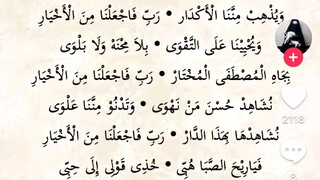 وَيُذْهِبْ مِنَّنَا الْأَكْدَار • رَبِّ فَاجْعَلْنَا مِنَ الْأَخْيَارِ
وَيُحْيِيْنَا عَلَى التَّقْوَى • بِلاَ مِحْنَةْ وَلَا بَلْوَى
بِجَاهِ الْمُصْطَفَى الْمُخْتَارْ • رَبِّ فَاجْعَلْنَا مِنَ الْأَخْيَارِ
نُشَاهِدْ حُسْنَ مَنْ نَهْوَى • وَتَدْنُوْ مِنَّنَا عَلْوَى
نُشَاهِدْهَا بِهَذَا الدَّارْ • رَبِّ فَاجْعَلْنَا مِنَ الْأَخْيَارِ
فَيَارِيْحَ الصَّبَا هُبِّى • خُذِى قَوْلِى إِلَى حِبِّى
2118